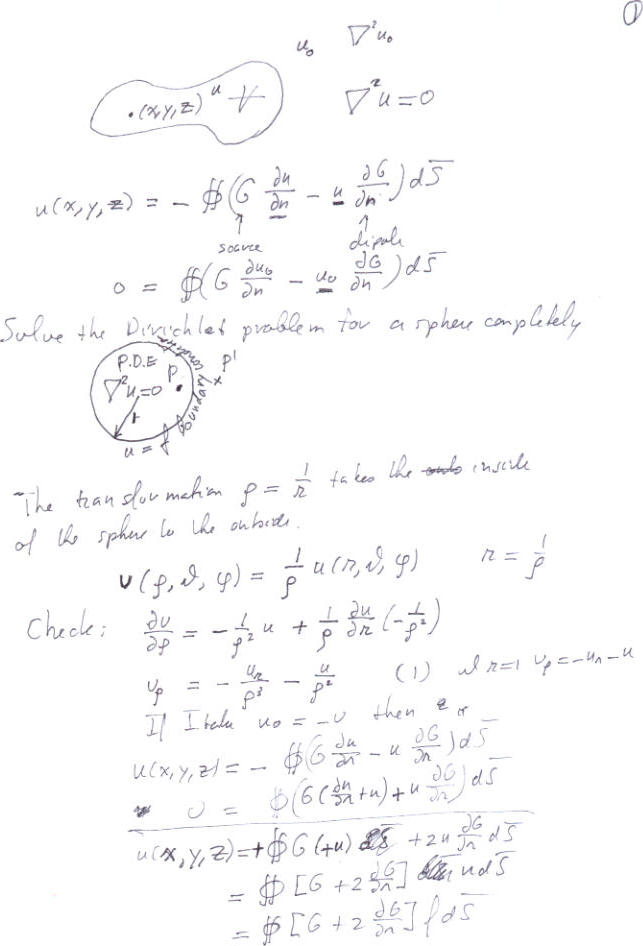 ①
u₀ ∇²u₀
.(x,y,z) u V ∇²u = 0
u(x,y,z) = - ∯(G ∂u/∂n - u ∂G/∂n) dS̄
source dipole
0 = ∯(G ∂u₀/∂n - u₀ ∂G/∂n) dS̄
Solve the Dirichlet problem for a sphere completely
P.D.E P P'
∇²u = 0 boundary
1
u = f
The transformation ρ = 1/r takes the inside
of the sphere to the outside.
υ(ρ, ϑ, φ) = 1/ρ u(r, ϑ, φ) r = 1/ρ
Check: ∂υ/∂ρ = - 1/ρ² u + 1/ρ ∂u/∂r (-1/ρ²)
υρ = - uᵣ/ρ³ - u/ρ² (1) at r=1 υρ = -uᵣ - u
If I take u₀ = -υ then
u(x,y,z) = - ∯(G ∂u/∂n - u ∂G/∂n) dS̄
0 = ∯(G(∂u/∂n + u) + u ∂G/∂n) dS̄
u(x,y,z) = + ∯ G(+u) dS̄ + 2u ∂G/∂n dS̄
= ∯ [G + 2 ∂G/∂n] u dS̄
= ∯ [G + 2 ∂G/∂n] f dS̄